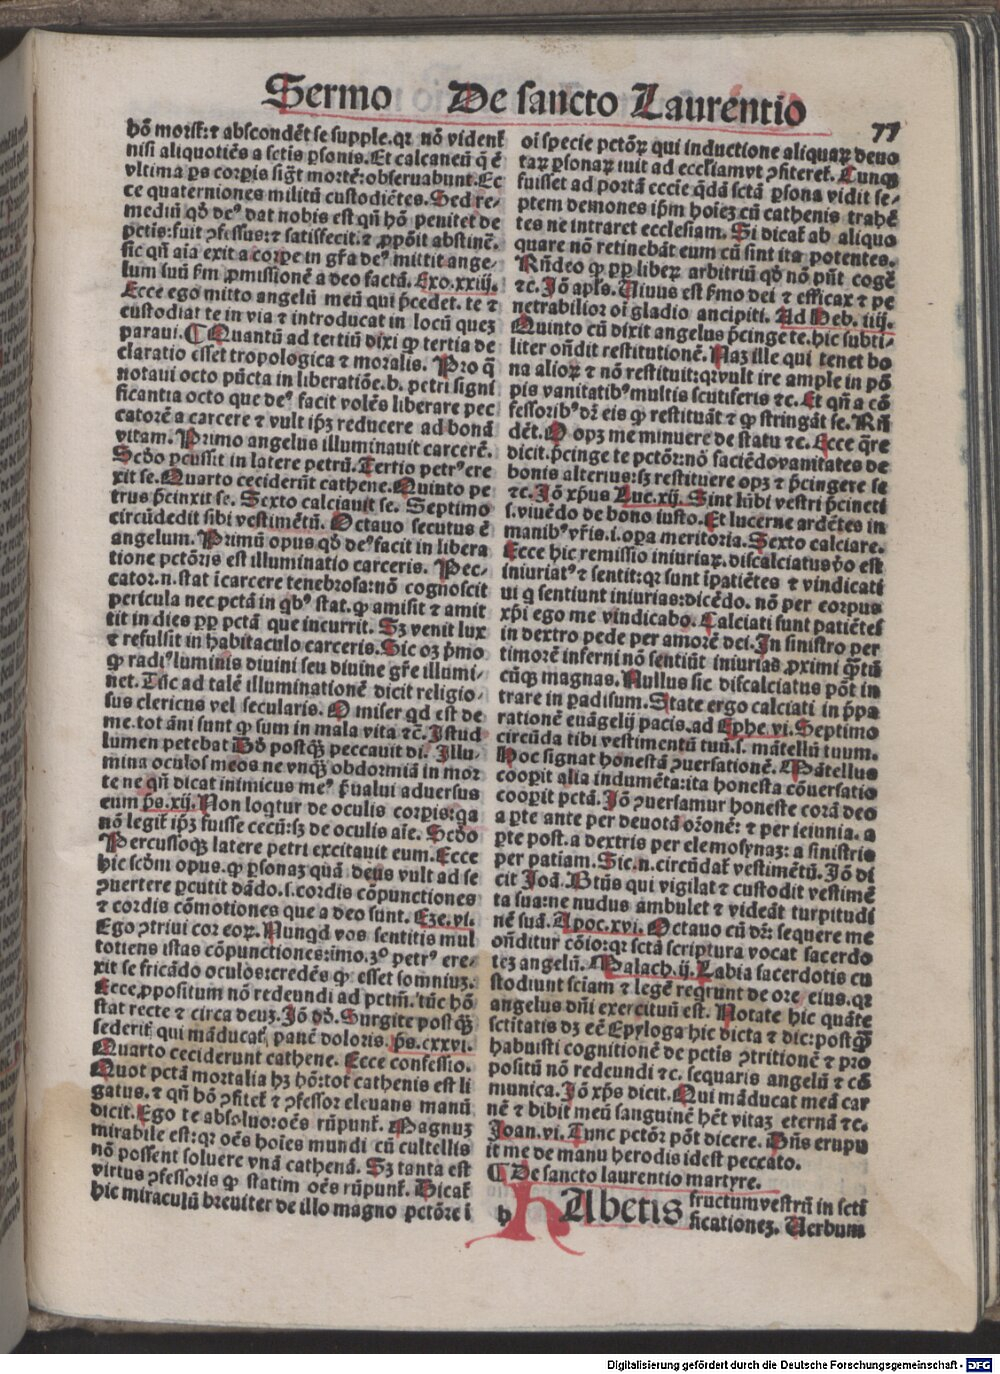 Sermo De sancto Laurentio
77
hō morit̄: ⁊ abscondēt se supple. qꝛ nō videnť
nisi aliquotiēs a sctis ꝑsonis. Et calcaneū q̄ ē
vltima ꝑs corꝑis sigt̄ mortē: obseruabunt. Ec
ce quaterniones militū custodiētes. Sed re-
mediū qď deꝰ dat nobis est qn̄ hō penitet de
pctis: fuit ꝯfessus: ⁊ satisfecit. ⁊ ꝓpōit abstinē.
sic qn̄ aīa exit a corꝑe in gr̄a deꝰ mittit ange-
lum suū ẜm ꝓmissionē a deo factā. Exo. xxiij.
Ecce ego mitto angelū meū qui p̄cedet. te ⁊
custodiat te in via ⁊ introducat in locū quez
paraui. ¶ Quantū ad tertiū dixi ꝙ tertia de
claratio esset tropologica ⁊ moralis. Pro q̄
notaui octo pūcta in liberatiōe. b. petri signi
ficantia octo que deꝰ facit volēs liberare pec
catorē a carcere ⁊ vult ipꝫ reducere ad bonā
vitam. Primo angelus illuminauit carcerē.
Scďo ꝑcussit in latere petrū. Tertio petrꝰ ere
xit se. Quarto ceciderūt cathene. Quinto pe
trus p̄cinxit se. Sexto calciauit se. Septimo
circūdedit sibi vestimētū. Octauo secutus ē
angelum. Primū opus qď deꝰ facit in libera
tione pctōris est illuminatio carceris. Pec-
cator. n. stat ī carcere tenebrosa: nō cognoscit
pericula nec pctā in qͥbꝰ stat. ꝙ amisit ⁊ amit
tit in dies ꝓꝑ pctā que incurrit. Sꝫ venit lux
⁊ refulsit in habitaculo carceris. Sic oꝫ p̄mo
ꝙ radiꝰ luminis diuini seu diuine gr̄e illumi-
net. Tūc ad talē illuminationē dicit religio-
sus clericus vel secularis. O miser qd est de
me. tot āni sunt ꝙ sum in mala vita ⁊c̄. Istud
lumen petebat Dď postqꝫ peccauit di. Illu-
mina oculos meos ne vnqꝫ obdormiā in mor
te ne qn̄ dicat inimicus meꝰ p̄ualui aduersus
eum ps. xij. Non loqtur de oculis corꝑis: qa
nō legit̄ ipꝫ fuisse cecū: sꝫ de oculis aīe. Scďo
Percussioqꝫ latere petri excitauit eum. Ecce
hic scďm opus. ꝙ ꝑsonaꝫ quā deus vult ad se
ꝯuertere ꝑcutit dādo. s. cordis cōpunctiones
⁊ cordis cōmotiones que a deo sunt. Eze. vi.
Ego ꝯtriui cor eoꝝ. Nunqd vos sentitis mul
totiens istas cōpunctiones: imo. 3ͦ petrꝰ ere-
xit se fricādo oculos: credēs ꝙ esset somniuꝫ.
Ecce ꝓpositum nō redeundi ad pctm̄. tūc hō
stat recte ⁊ circa deuꝫ. Jō dď. Surgite postqꝫ
sederit̄ qui māducat̄ panē doloris. ps. cxxvi.
Quarto ceciderunt cathene. Ecce confessio.
Quot pctā mortalia hꝫ hō: tot cathenis est li
gatus. ⁊ qn̄ hō ꝯfitet̄ ⁊ ꝯfessor eleuans manū
dicit. Ego te absoluo: oēs rūpunt̄. Magnuꝫ
mirabile est: qꝛ oēs hoīes mundi cū cultellis
nō possent soluere vnā cathenā. Sꝫ tanta est
virtus ꝯfessoris ꝙ statim oēs rūpunt̄. Dicat̄
hic miraculū breuiter de illo magno pctōre ī
oī specie pctōꝝ qui inductione aliquaꝝ deuo
taꝝ ꝑsonaꝝ iuit ad eccl̄iam vt ꝯfiteret̄. Cunqꝫ
fuisset ad portā eccīe qdā sctā ꝑsona vidit se-
ptem demones ip̄m hoīeꝫ cū cathenis trahē
tes ne intraret ecclesiam. Si dicat̄ ab aliquo
quare nō retinebāt eum cū sint ita potentes.
Rn̄deo ꝙ ꝓꝑ liberꝝ arbitriū qď nō pn̄t cogē
⁊c. Jō apls. Viuus est ẜmo dei ⁊ efficax ⁊ pe
netrabilior oī gladio ancipiti. Ad Heb. iiij.
Quinto cū dixit angelus p̄cinge te. hic subti-
liter on̄dit restitutionē. Naꝫ ille qui tenet bo
na alioꝝ ⁊ nō restituit: qꝛ vult ire ample in pō
pis vanitatibꝰ multis scutiferis ⁊c. Et qn̄ a cō
fessoribꝰ dꝛ eis ꝙ restituāt ⁊ ꝙ stringāt se. Rn̄
dēt. O opꝫ me minuere de statu ⁊c. Ecce qͣre
dicit. p̄cinge te pctōr: nō faciēdo vanitates de
bonis alterius: sꝫ restituere opꝫ ⁊ p̄cingere se
⁊c. Jō xp̄us Luc. xij. Sint lūbi vestri p̄cincti
s. viuēdo de bono iusto. Et lucerne ardētes in
manibꝰ vr̄is. i. oꝑa meritoria. Sexto calciare.
Ecce hic remissio iniuriaꝝ. discalciatus ꝟo est
iniuriatꝰ ⁊ sentit: qꝛ sunt īpatiētes ⁊ vindicati
ui q sentiunt iniurias: dicēdo. nō per corpus
xp̄i ego me vindicabo. Calciati sunt patiētes
in dextro pede per amorē dei. In sinistro per
timorē inferni nō sentiūt iniurias ꝓximi qͣtū
cūqꝫ magnas. Nullus sic discalciatus pōt in
trare in padisum. State ergo calciati in p̄pa
rationē euāgelij pacis. ad Ephe. vi. Septimo
circūda tibi vestimentū tuū. s. mātellū tuum.
hoc signat honestā ꝯuersationē. Mātellus
cooꝑit alia indumēta: ita honesta cōuersatio
cooꝑit pctā. Jō ꝯuersamur honeste corā deo
a ꝑte ante per deuotā orōnē: ⁊ per ieiunia. a
ꝑte post. a dextris per elemosynaꝫ: a sinistris
per patiam. Sic. n. circūdat̄ vestimētū. Jō di
cit Joā. Btūs qui vigilat ⁊ custodit vestimē
ta sua: ne nudus ambulet ⁊ videāt turpitudi
nē suā. Apoc. xvi. Octauo cū dꝛ: sequere me
on̄ditur cōio: qꝛ sctā scriptura vocat sacerdo
teꝫ angelū. Malach. ij. Labia sacerdotis cu
stodiunt sciam ⁊ legē reqrunt de ore eius. qꝛ
angelus dn̄i exercituū est. Notate hic quāte
sctitatis dꝫ eē Epyloga hic dicta ⁊ dic: postqꝫ
habuisti cognitionē de pctis ꝯtritionē ⁊ pro
positū nō redeundi ⁊c. sequaris angelū ⁊ cō
munica. Jō xp̄s dicit. Qui māducat meā car
nē ⁊ bibit meū sanguinē hēt vitaꝫ eternā ⁊c.
Joan. vi. Tunc pctōr pōt dicere. Dn̄s erupu
it me de manu herodis idest peccato.
¶ De sancto laurentio martyre.
h HAbetis fructum vestrū in scti
ficationeꝫ. Verbum
Digitalisierung gefördert durch die Deutsche Forschungsgemeinschaft - DFG